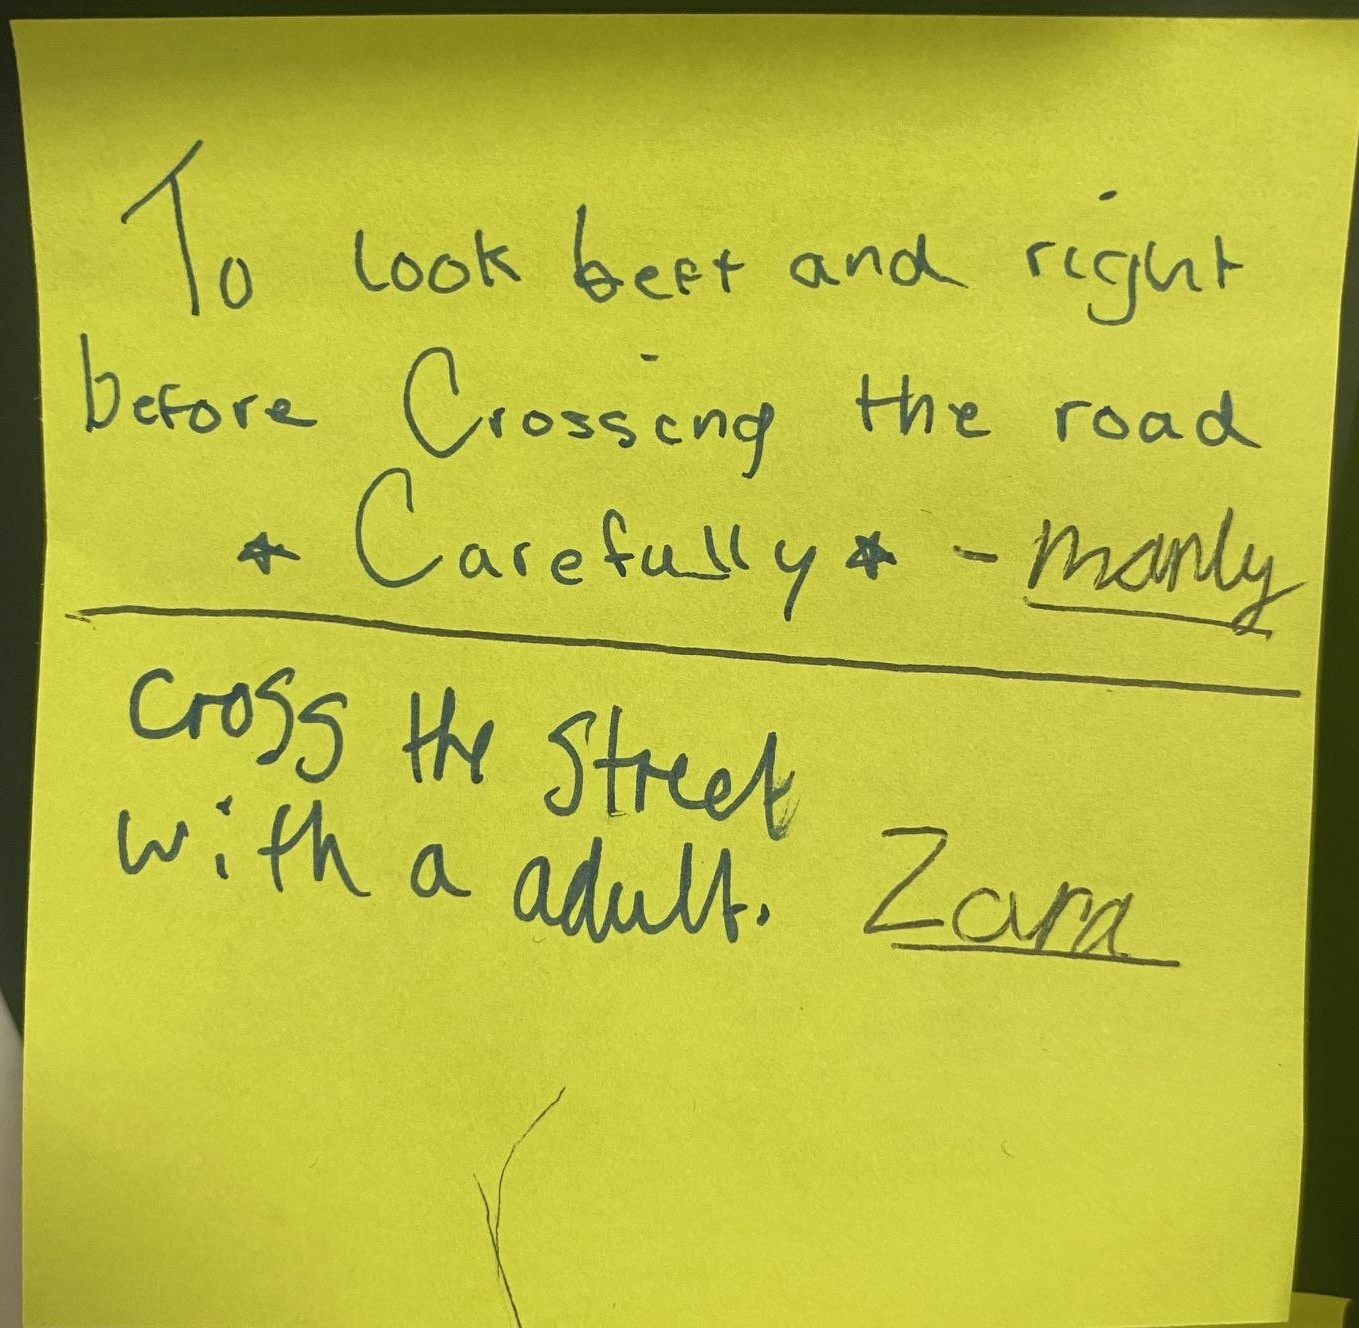 To look beft and right
before Crossing the road
* Carefully * - manly
cross the street
with a adult. Zara